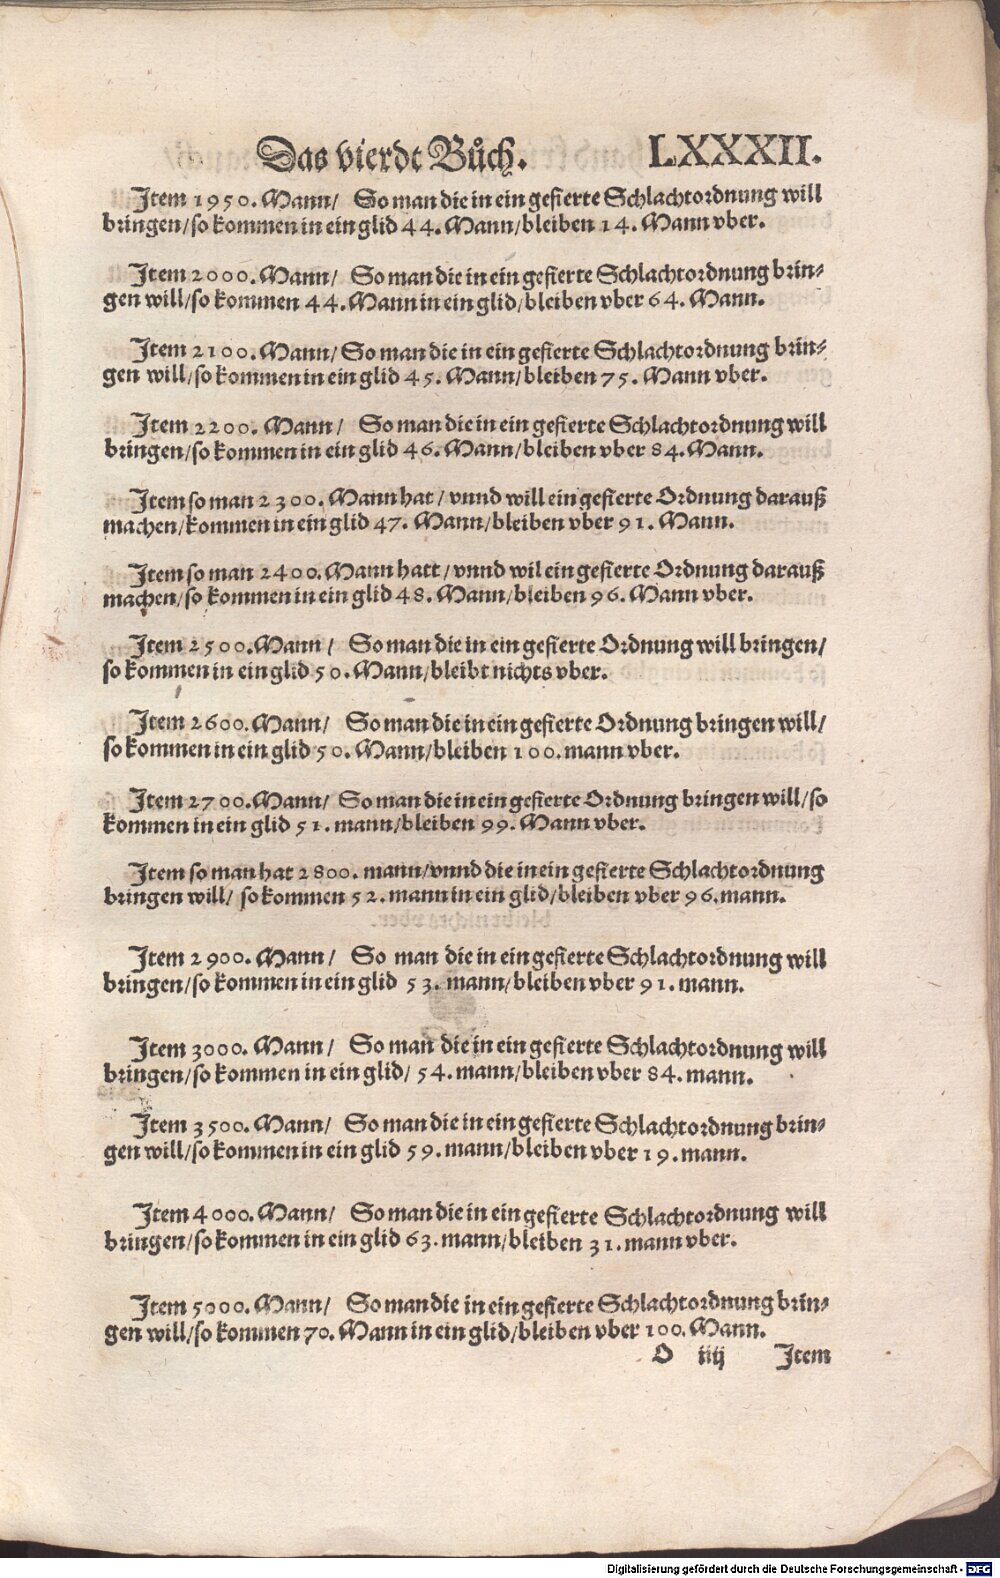 Das vierdt Bůch. LXXXII.
Item 1950. Mann/ So man die in ein gefierte Schlachtordnung will
bringen/so kommen in ein glid 44. Mann/bleiben 14. Mann vber.
Item 2000. Mann/ So man die in ein gefierte Schlachtordnung brin⸗
gen will/so kommen 44. Mann in ein glid/bleiben vber 64. Mann.
Item 2100. Mann/ So man die in ein gefierte Schlachtordnung brin⸗
gen will/so kommen in ein glid 45. Mann/bleiben 75. Mann vber.
Item 2200. Mann/ So man die in ein gefierte Schlachtordnung will
bringen/so kommen in ein glid 46. Mann/bleiben vber 84. Mann.
Item so man 2300. Mann hat/ vnnd will ein gefierte Ordnung darauß
machen/kommen in ein glid 47. Mann/bleiben vber 91. Mann.
Item so man 2400. Mann hatt/vnnd wil ein gefierte Ordnung darauß
machen/so kommen in ein glid 48. Mann/bleiben 96. Mann vber.
Item 2500. Mann/ So man die in ein gefierte Ordnung will bringen/
so kommen in ein glid 50. Mann/bleibt nichts vber.
Item 2600. Mann/ So man die in ein gefierte Ordnung bringen will/
so kommen in ein glid 50. Mann/bleiben 100. mann vber.
Item 2700. Mann/ So man die in ein gefierte Ordnung bringen will/so
kommen in ein glid 51. mann/bleiben 99. Mann vber.
Item so man hat 2800. mann/vnnd die in ein gefierte Schlachtordnung
bringen will/ so kommen 52. mann in ein glid/bleiben vber 96. mann.
Item 2900. Mann/ So man die in ein gefierte Schlachtordnung will
bringen/so kommen in ein glid 53. mann/bleiben vber 91. mann.
Item 3000. Mann/ So man die in ein gefierte Schlachtordnung will
bringen/so kommen in ein glid/ 54. mann/bleiben vber 84. mann.
Item 3500. Mann/ So man die in ein gefierte Schlachtordnung brin⸗
gen will/so kommen in ein glid 59. mann/bleiben vber 19. mann.
Item 4000. Mann/ So man die in ein gefierte Schlachtordnung will
bringen/so kommen in ein glid 63. mann/bleiben 31. mann vber.
Item 5000. Mann/ So man die in ein gefierte Schlachtordnung brin⸗
gen will/so kommen 70. Mann in ein glid/bleiben vber 100. Mann.
O iiij Item
Digitalisierung gefördert durch die Deutsche Forschungsgemeinschaft - DFG